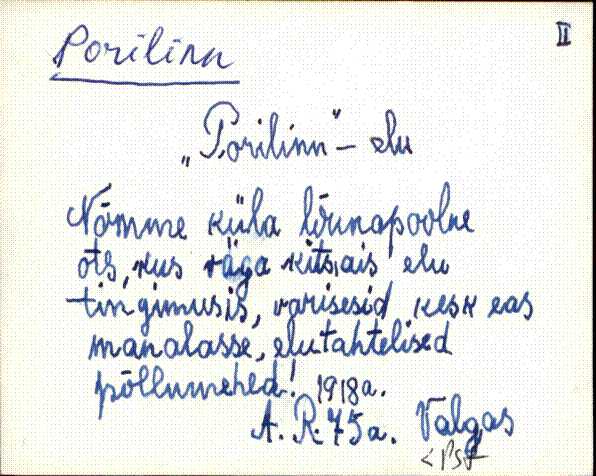 Porilinn
II
„Porilinn" – elu
Nõmme küla lõunapoolne
ots, kus väga kitsais elu
tingimusis, varisesid kesk eas
manalasse, elutahtelised
põllumehed! 1918a.
A. R. 75a. Valgas
< Pst